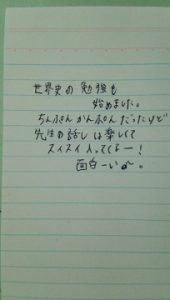 世界史の勉強も
始めました。
ちんぷんかんぷんだったけど
先生の話しは楽しくて
スイスイ入ってくるー!
面白ーいd~。